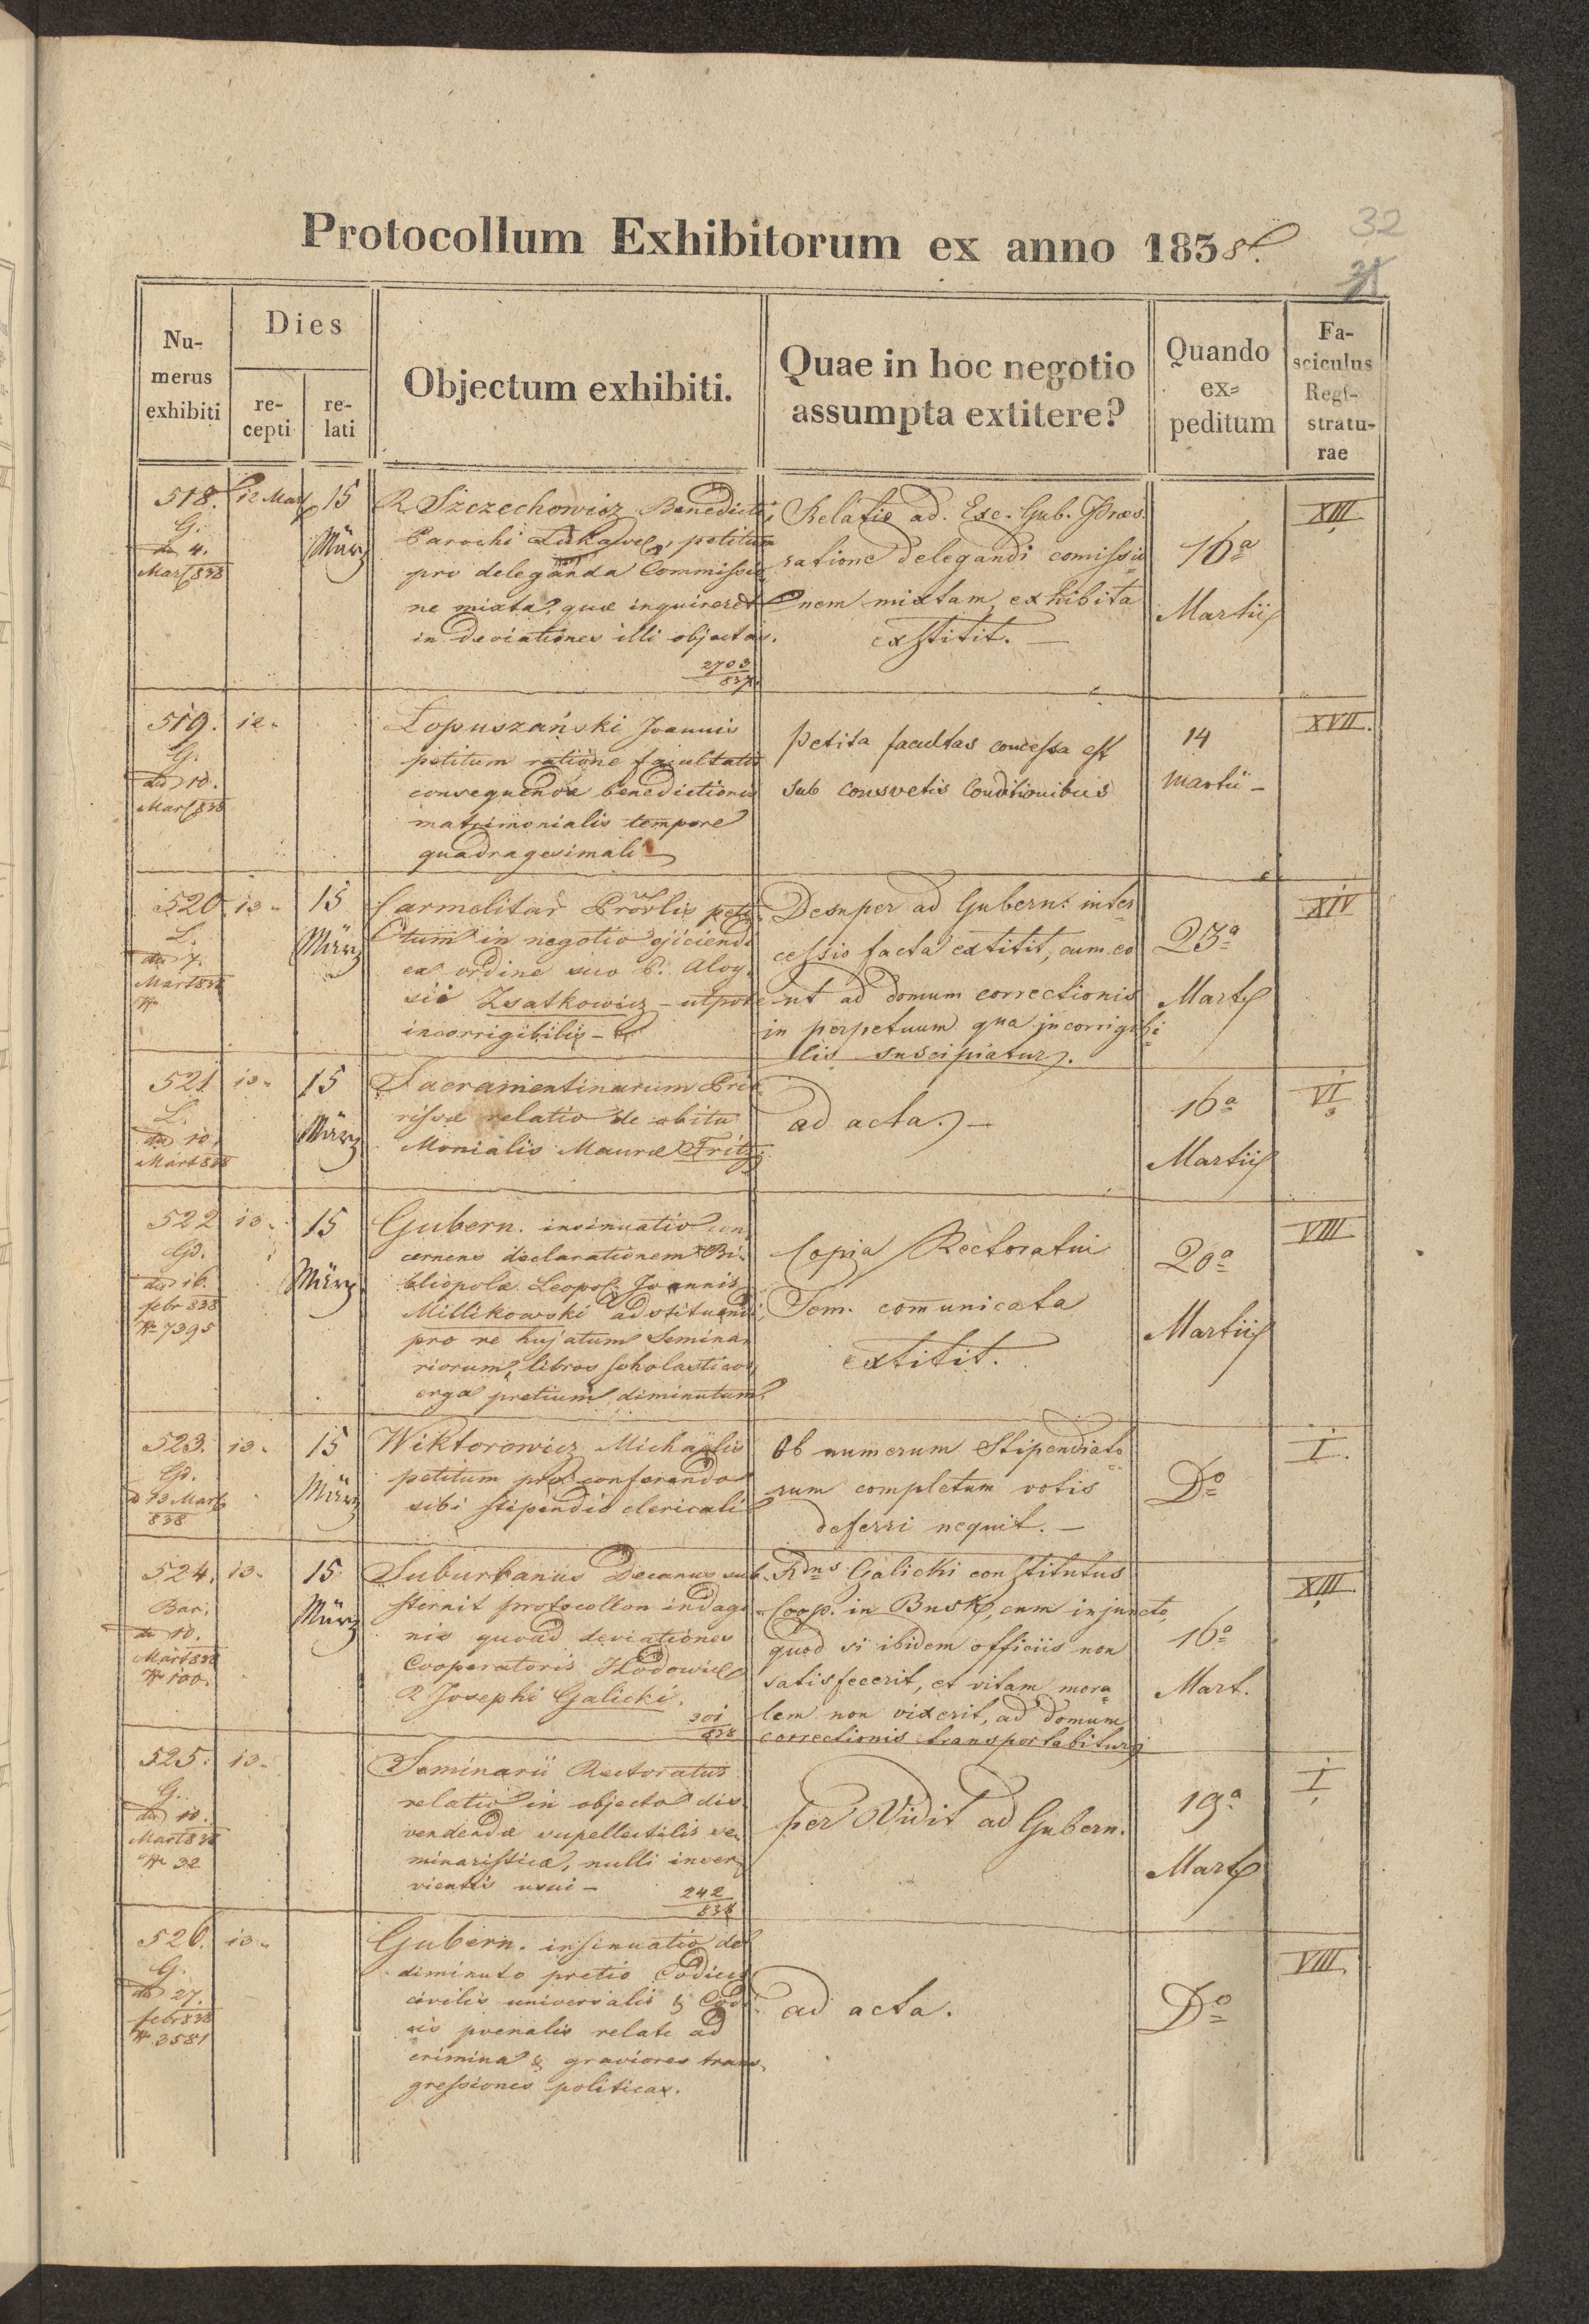 Protocollum Exhibitorum ex anno 1838.
32
31
Numerus exhibiti
Dies
recepti
relati
Objectum exhibiti.
Quae in hoc negotio assumpta extitere?
Quando ex=peditum
Fasciculus Registraturae
518.
G.
de 4.
Mart 838
12 Mart
15
März
R. Szczechowicz Benedicti,
Parochi petitum
pro deleganda Commissio
ne mixta, quæ inquireret
in deviationes illi objectas.
2703
837.
Relatio ad. Exc. Gub. Præs.
ratione delegandi comissio=
nem mixtam, exhibita
exstitit. —
16a
Martii
XIII
519.
G.
de 10.
Mart 838
12.
Łopuszański Joannis
petitum ratione facultatis
consequendæ benedictionis
matrimonialis tempore
quadragesimali —
Petita facultas concessa est
sub consvetis Conditionibus
14
Martii —
XVII.
520.
L.
de 7.
Mart 838
13.
15
März
Carmelitar Prov̄lis peti
tum in negotio ejiciendi
ex ordine suo P. Aloy
sii Zsatkowicz — utpote
incorrigibilis —
Desuper ad Gubern: inter
cessio facta extitit, cum eo
ut ad domum correctionis
in perpetuum qua incorrigibi
lis suscipiatur.
23a
Mart
XIV
521
L.
de 10.
Mart 838
13.
15
März
Sacramentinarum Prio
rissæ relatio de obitu
Monialis Mauræ Fritz
ad acta. —
16a
Martii
VI.
522
Gd.
de 16.
febr 838
N 7395
13.
15
März
Gubern. insinuatio con
cernens declarationem Bi
bliopolæ Leopol: Joannis
Millikowski adstituendi
pro re hujatum Semina
riorum, libros scholasticos
erga pretium diminutum.
Copia Rectoratui
Sem. comunicata
extitit.
20a
Martii
VIII
523.
Gd.
d 13 Mart
838
13.
15
März
Wiktorowicz Michaelis
petitum pro conferendo
sibi stipendio clericali
Ob numerum Stipendiato
rum completum votis
deferri nequit. —
Do
I.
524.
Bar.
de 10.
Mart 838
N 100.
13.
15
März
Suburbanus Decanus sub
sternit protocollon indagi
nis quoad deviationes
Cooperatoris Hodowic
R. Josephi Galicki.
301
838
Rdns Galicki constitutus
Coop. in Busk, cum injuncto,
quod si ibidem officiis non
satisfecerit, et vitam mora
lem non vixerit, ad domum
correctionis transportabitur
16a
Mart.
XIII.
525.
G.
de 10.
Mart 838
N 32
13.
Seminarii Rectoratus
relatio in objecto dis
vendendæ supellectilis se
minaristicæ, nulli inser
vientis usui —
242
838
per Vidit ad Gubern.
19a
Mart
I,
526.
G.
de 27.
febr 838
N 3581
13.
Gubern. insinuatio de
diminuto pretio Codicis
civilis universalis & Codi
cis poenalis relate ad
crimina & graviores trans
gressiones politicas.
ad acta.
Do
VIII.